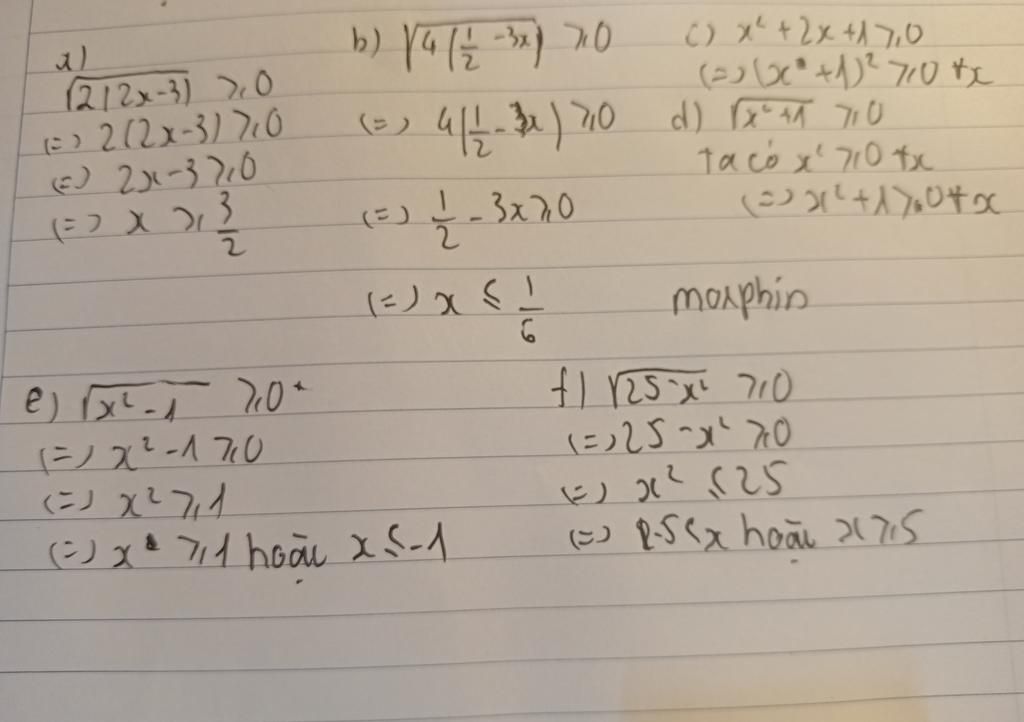 a)
√2(2x-3) ≥ 0
(=) 2(2x-3) ≥ 0
(=) 2x-3 ≥ 0
(=) x ≥ 3/2
b) √4(1/2 -3x) ≥ 0
(=) 4(1/2 - 3x) ≥ 0
(=) 1/2 - 3x ≥ 0
(=) x ≤ 1/6
c) x² + 2x + 1 ≥ 0
(=) (x + 1)² ≥ 0 ∀x
d) √x²+1 ≥ 0
ta có x² ≥ 0 ∀x
(=) x² + 1 ≥ 0 ∀x
morphin
e) √x² - 1 ≥ 0
(=) x² - 1 ≥ 0
(=) x² ≥ 1
(=) x ≥ 1 hoặc x ≤ -1
f) √25 - x² ≥ 0
(=) 25 - x² ≥ 0
(=) x² ≤ 25
(=) -5 ≤ x hoặc x ≥ 5